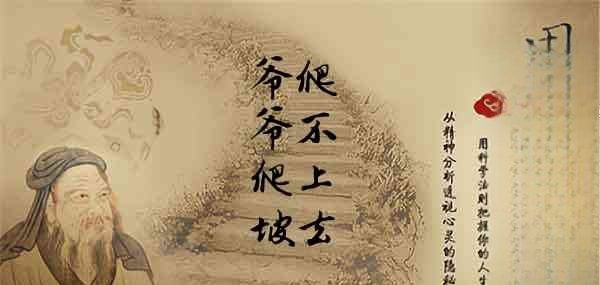 爷爷爬坡
爬不上去
从精神分析透视心灵的隐秘
用科学法则把握你的人生